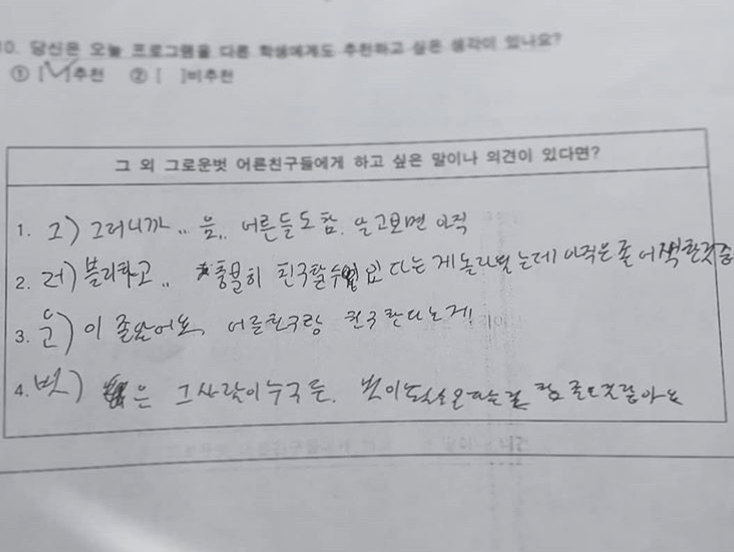 10. 당신은 오늘 프로그램을 다른 학생에게도 추천하고 싶은 생각이 있나요?
① [✓]추천 ② [ ]비추천
그 외 그로운벗 어른친구들에게 하고 싶은 말이나 의견이 있다면?
1. 그) 그러니까.. 음.. 어른들도 참. 알고보면 아직
2. 러) 블리하고.. 충분히 친구할수 있다는 게 놀라웠는데 아직은 좀 어색한것
3. 운) 이 좋았어요, 어른친구랑 친구한다는게!
4. 벗) 은 그사람이 누구든. 벗이 참 좋은것같아요